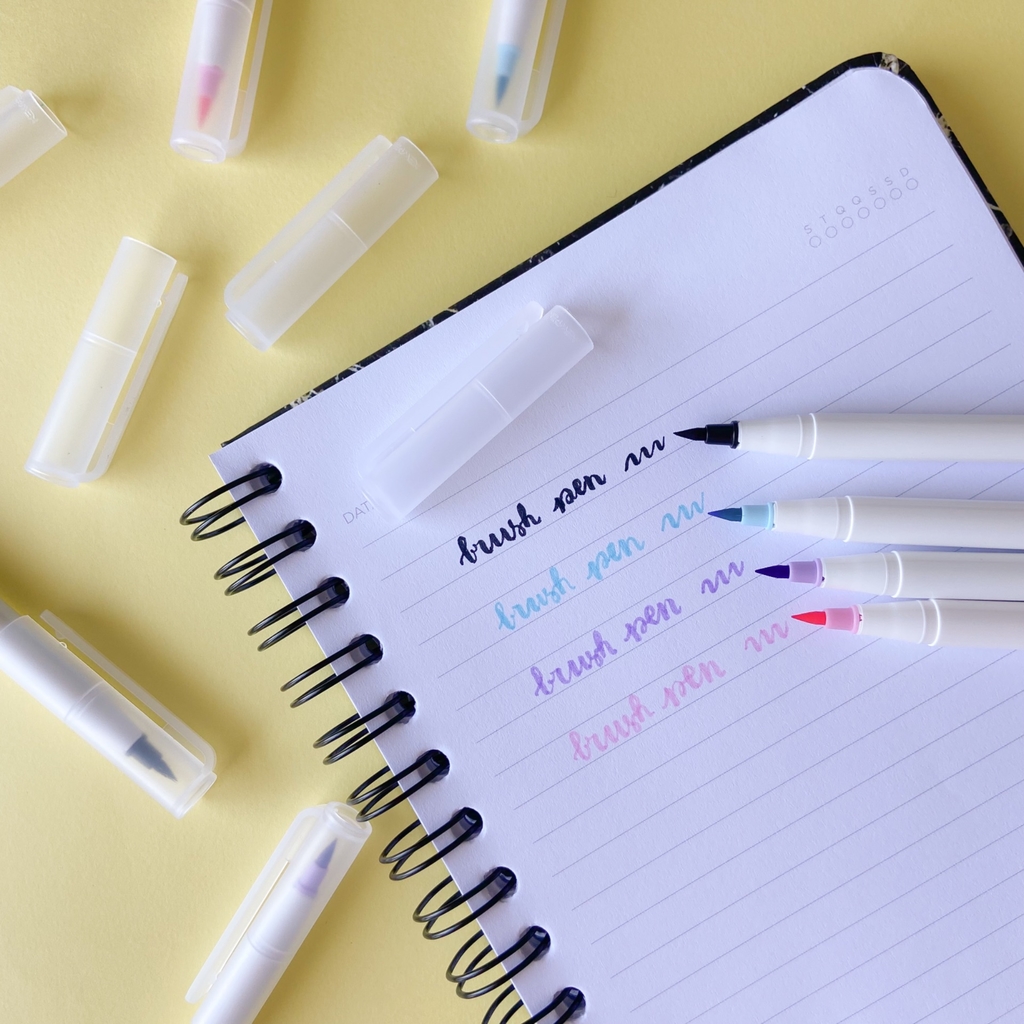 S T Q Q S S D
DAT
brush pen
brush pen
brush pen
brush pen